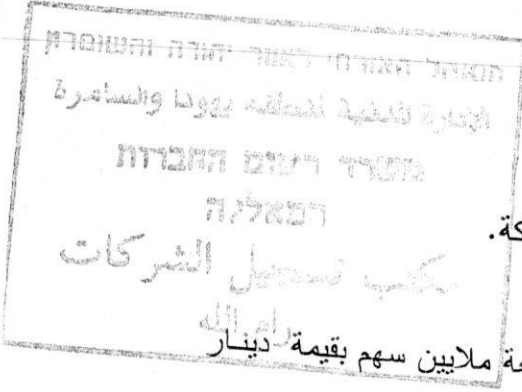 המינהל האזרחי לאזור יהודה והשומרון
الإدارة المدنية لمنطقة يهودا والسامرة
משרד רשום החברות
רמאללה
مكتب تسجيل الشركات
رام الله
كة.
عة ملايين سهم بقيمة دينار